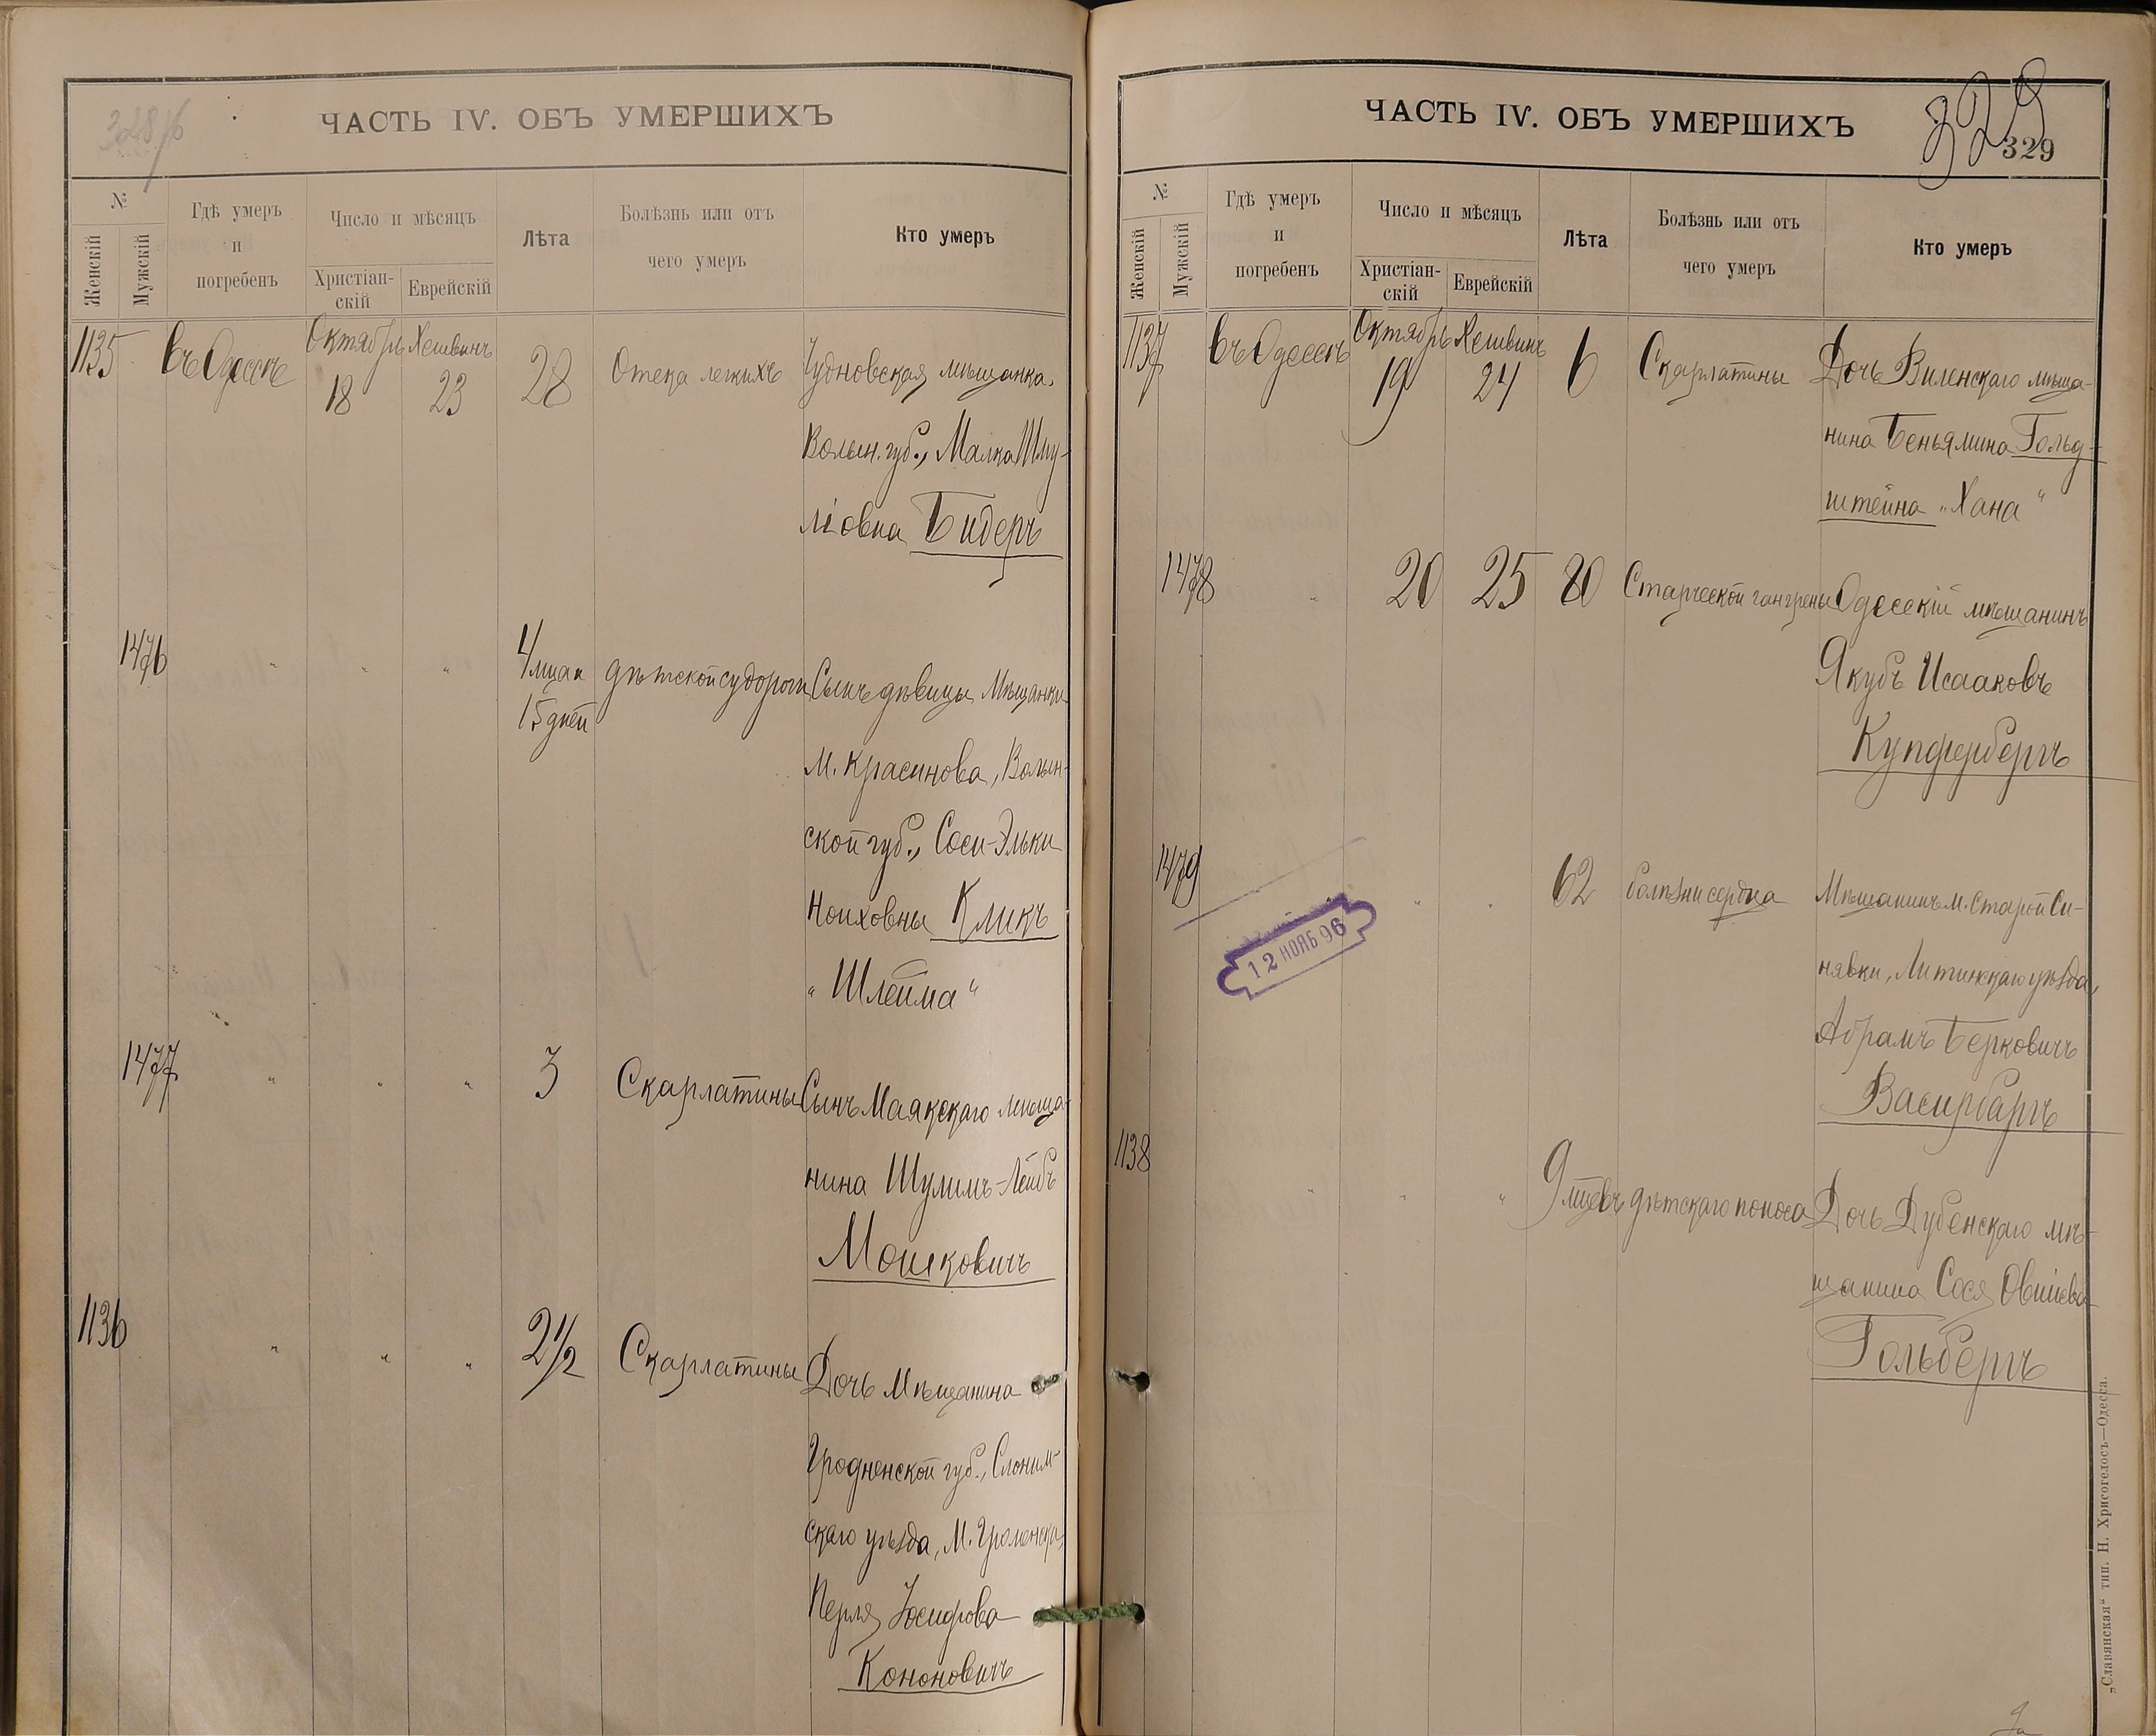 328/б
ЧАСТЬ IV. ОБЪ УМЕРШИХЪ
№
Женскій
Мужскій
Гдѣ умеръ
и
погребенъ
Число и мѣсяцъ
Христіан-
скій
Еврейскій
Лѣта
Болѣзнь или отъ
чего умеръ
Кто умеръ
1135 въ Одессѣ Октябрь Хешвинъ 28 Отека легкихъ Чудновская мѣщанка,
18 23
Волын. губ., Малка Шму-
ліовна Бидеръ
1476 " " " 4 мца и дѣтской судороги Сынъ дѣвицы Мѣщанки
15 дней
м. Красинова, Волын-
ской губ., Соси-Эльки
Ноиховны Кликъ
"Шлейма"
1477 " " " 3 Скарлатины Сынъ Маякскаго мѣща-
нина Шулимъ-Лейбъ
Мошковичъ
1136 " " " 2 1/2 Скарлатины Дочь Мѣщанина
Гродненской губ., Слоним-
скаго уѣзда, М.
Перля Іосифова
Кононовичъ
ЧАСТЬ IV. ОБЪ УМЕРШИХЪ
329
329
№
Женскій
Мужскій
Гдѣ умеръ
и
погребенъ
Число и мѣсяцъ
Христіан-
скій
Еврейскій
Лѣта
Болѣзнь или отъ
чего умеръ
Кто умеръ
1137 въ Одессѣ Октябрь Хешвинъ 6 Скарлатины Дочь Виленскаго мѣща-
19 24
нина Беньямина Гольд-
штейна "Хана"
1478 " 20 25 80 Старческой гангрены Одесскій мѣщанинъ
Якубъ Исааковъ
Купфербергъ
1479 " " 62 болѣзни сердца Мѣщанинъ м. Старой Си-
нявки, Литинскаго уѣзда,
Абрамъ Берковичъ
Васирбаргъ
12 НОЯБ 96
1138 " " " 9 мцевъ дѣтскаго поноса Дочь Дубенскаго мѣ-
щанина Сося Овшіева
Гольбергъ
„Славянская“ тип. Н. Хрисогелосъ—Одесса.